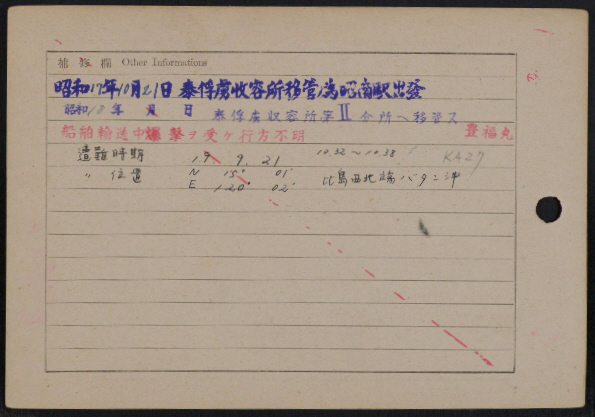 補修欄 Other Informations
昭和17年10月21日 泰俘虜收容所移管ノ為昭南駅出發
昭和18年 月 日 泰俘虜収容所第II分所ヘ移管ス
船舶輸送中爆撃ヲ受ケ行方不明 豊福丸
遭難時期 19. 9. 21 10.32〜10.38 KA27
〃 位置 N 15° 01'
E 120° 02' 比島西北端バタン沖